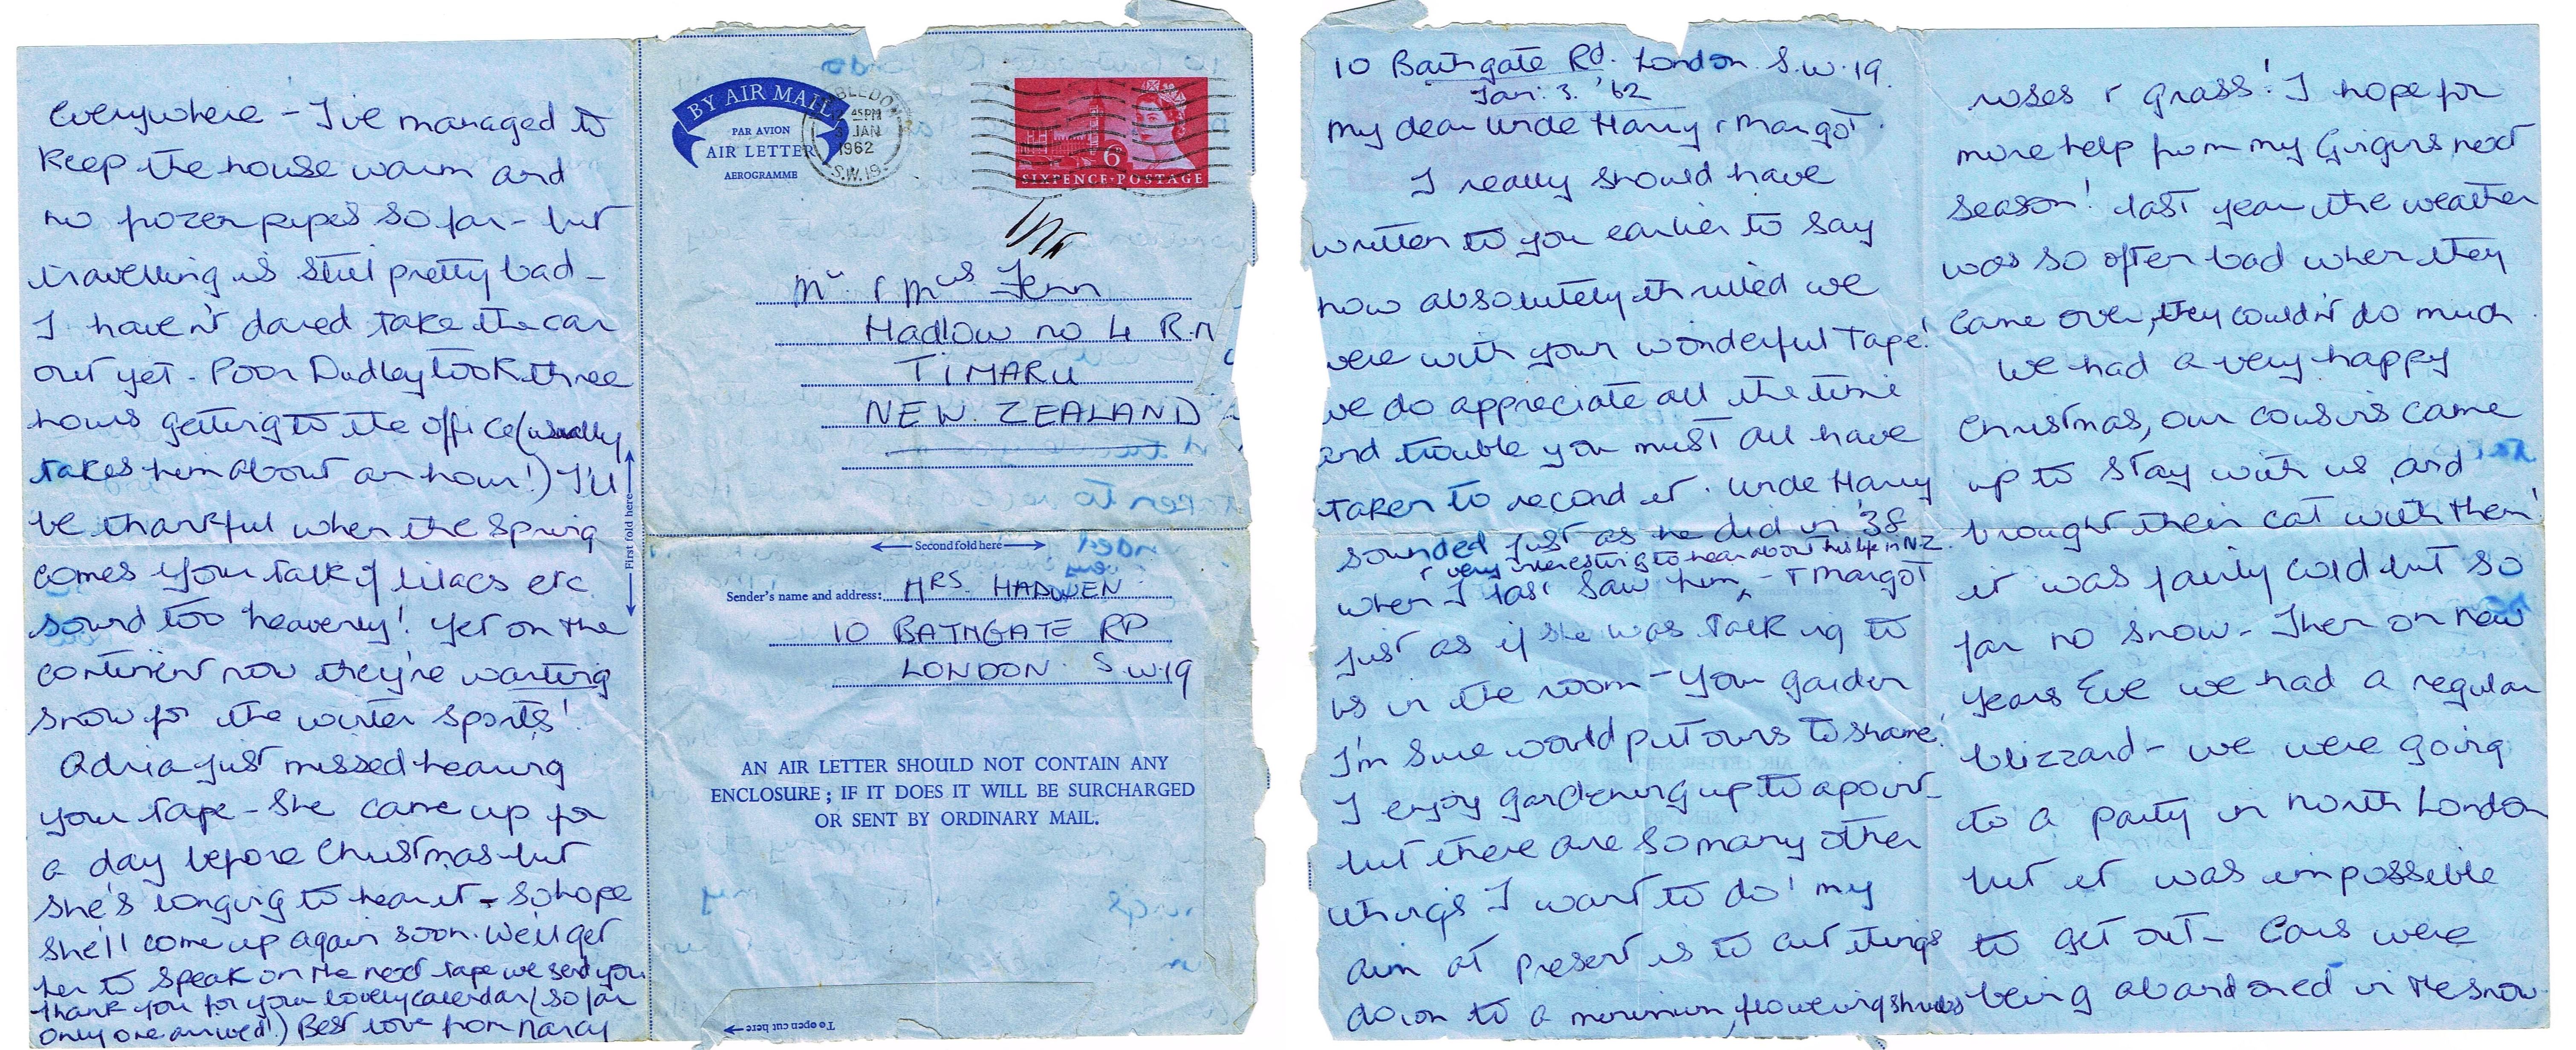 10 Bathgate Rd. London. S.W.19.
Jan: 3. '62
My dear Uncle Harry & Margot.
I really should have
written to you earlier to say
how absolutely thrilled we
were with your wonderful Tape!
we do appreciate all the time
and trouble you must all have
taken to record it. Uncle Harry
sounded just as he did in '38
& very interesting to hear about his life in N.Z.
when I last saw him ^ - & Margot
just as if she was talking to
us in the room - Your garden
I'm sure would put ours to shame!
I enjoy gardening up to a point -
but there are so many other
things I want to do! My
aim at present is to cut things
down to a minimum, flowering shrubs
roses & grass! I hope for
more help from my Girgirs next
season! last year the weather
was so often bad when they
came over, they couldn't do much.
We had a very happy
Christmas, our cousins came
up to stay with us, and
brought their cat with them!
it was fairly cold but so
far no snow - Then on New
Years Eve we had a regular
blizzard - we were going
to a party in North London
but it was impossible
to get out - Cars were
being abandoned in the snow
everywhere - I've managed to
keep the house warm and
no frozen pipes so far - but
travelling is still pretty bad -
I haven't dared take the car
out yet - Poor Dudley took three
hours getting to the office (usually
takes him about an hour!) I'll
be thankful when the Spring
comes & your talk of lilacs etc
sound too heavenly! Yet on the
continent now they're wanting
snow for the winter sports!
Adria just missed hearing
your tape - She came up for
a day before Christmas but
she's longing to hear it - so hope
she'll come up again soon. We'll get
her to speak on the next tape we send you
thank you for your lovely calendar (so far
only one arrived!) Best love from Nancy
BY AIR MAIL
PAR AVION
AIR LETTER
AEROGRAMME
WIMBLEDON
45PM
3 JAN
1962
S.W.19.
6
SIXPENCE·POSTAGE
Mr & Mrs Fenn
Hadlow no 4 R.
TIMARU
NEW ZEALAND
First fold here
Second fold here
Sender's name and address: MRS. HADWEN
10 BATHGATE RD
LONDON S.W.19
AN AIR LETTER SHOULD NOT CONTAIN ANY
ENCLOSURE ; IF IT DOES IT WILL BE SURCHARGED
OR SENT BY ORDINARY MAIL.
To open cut here